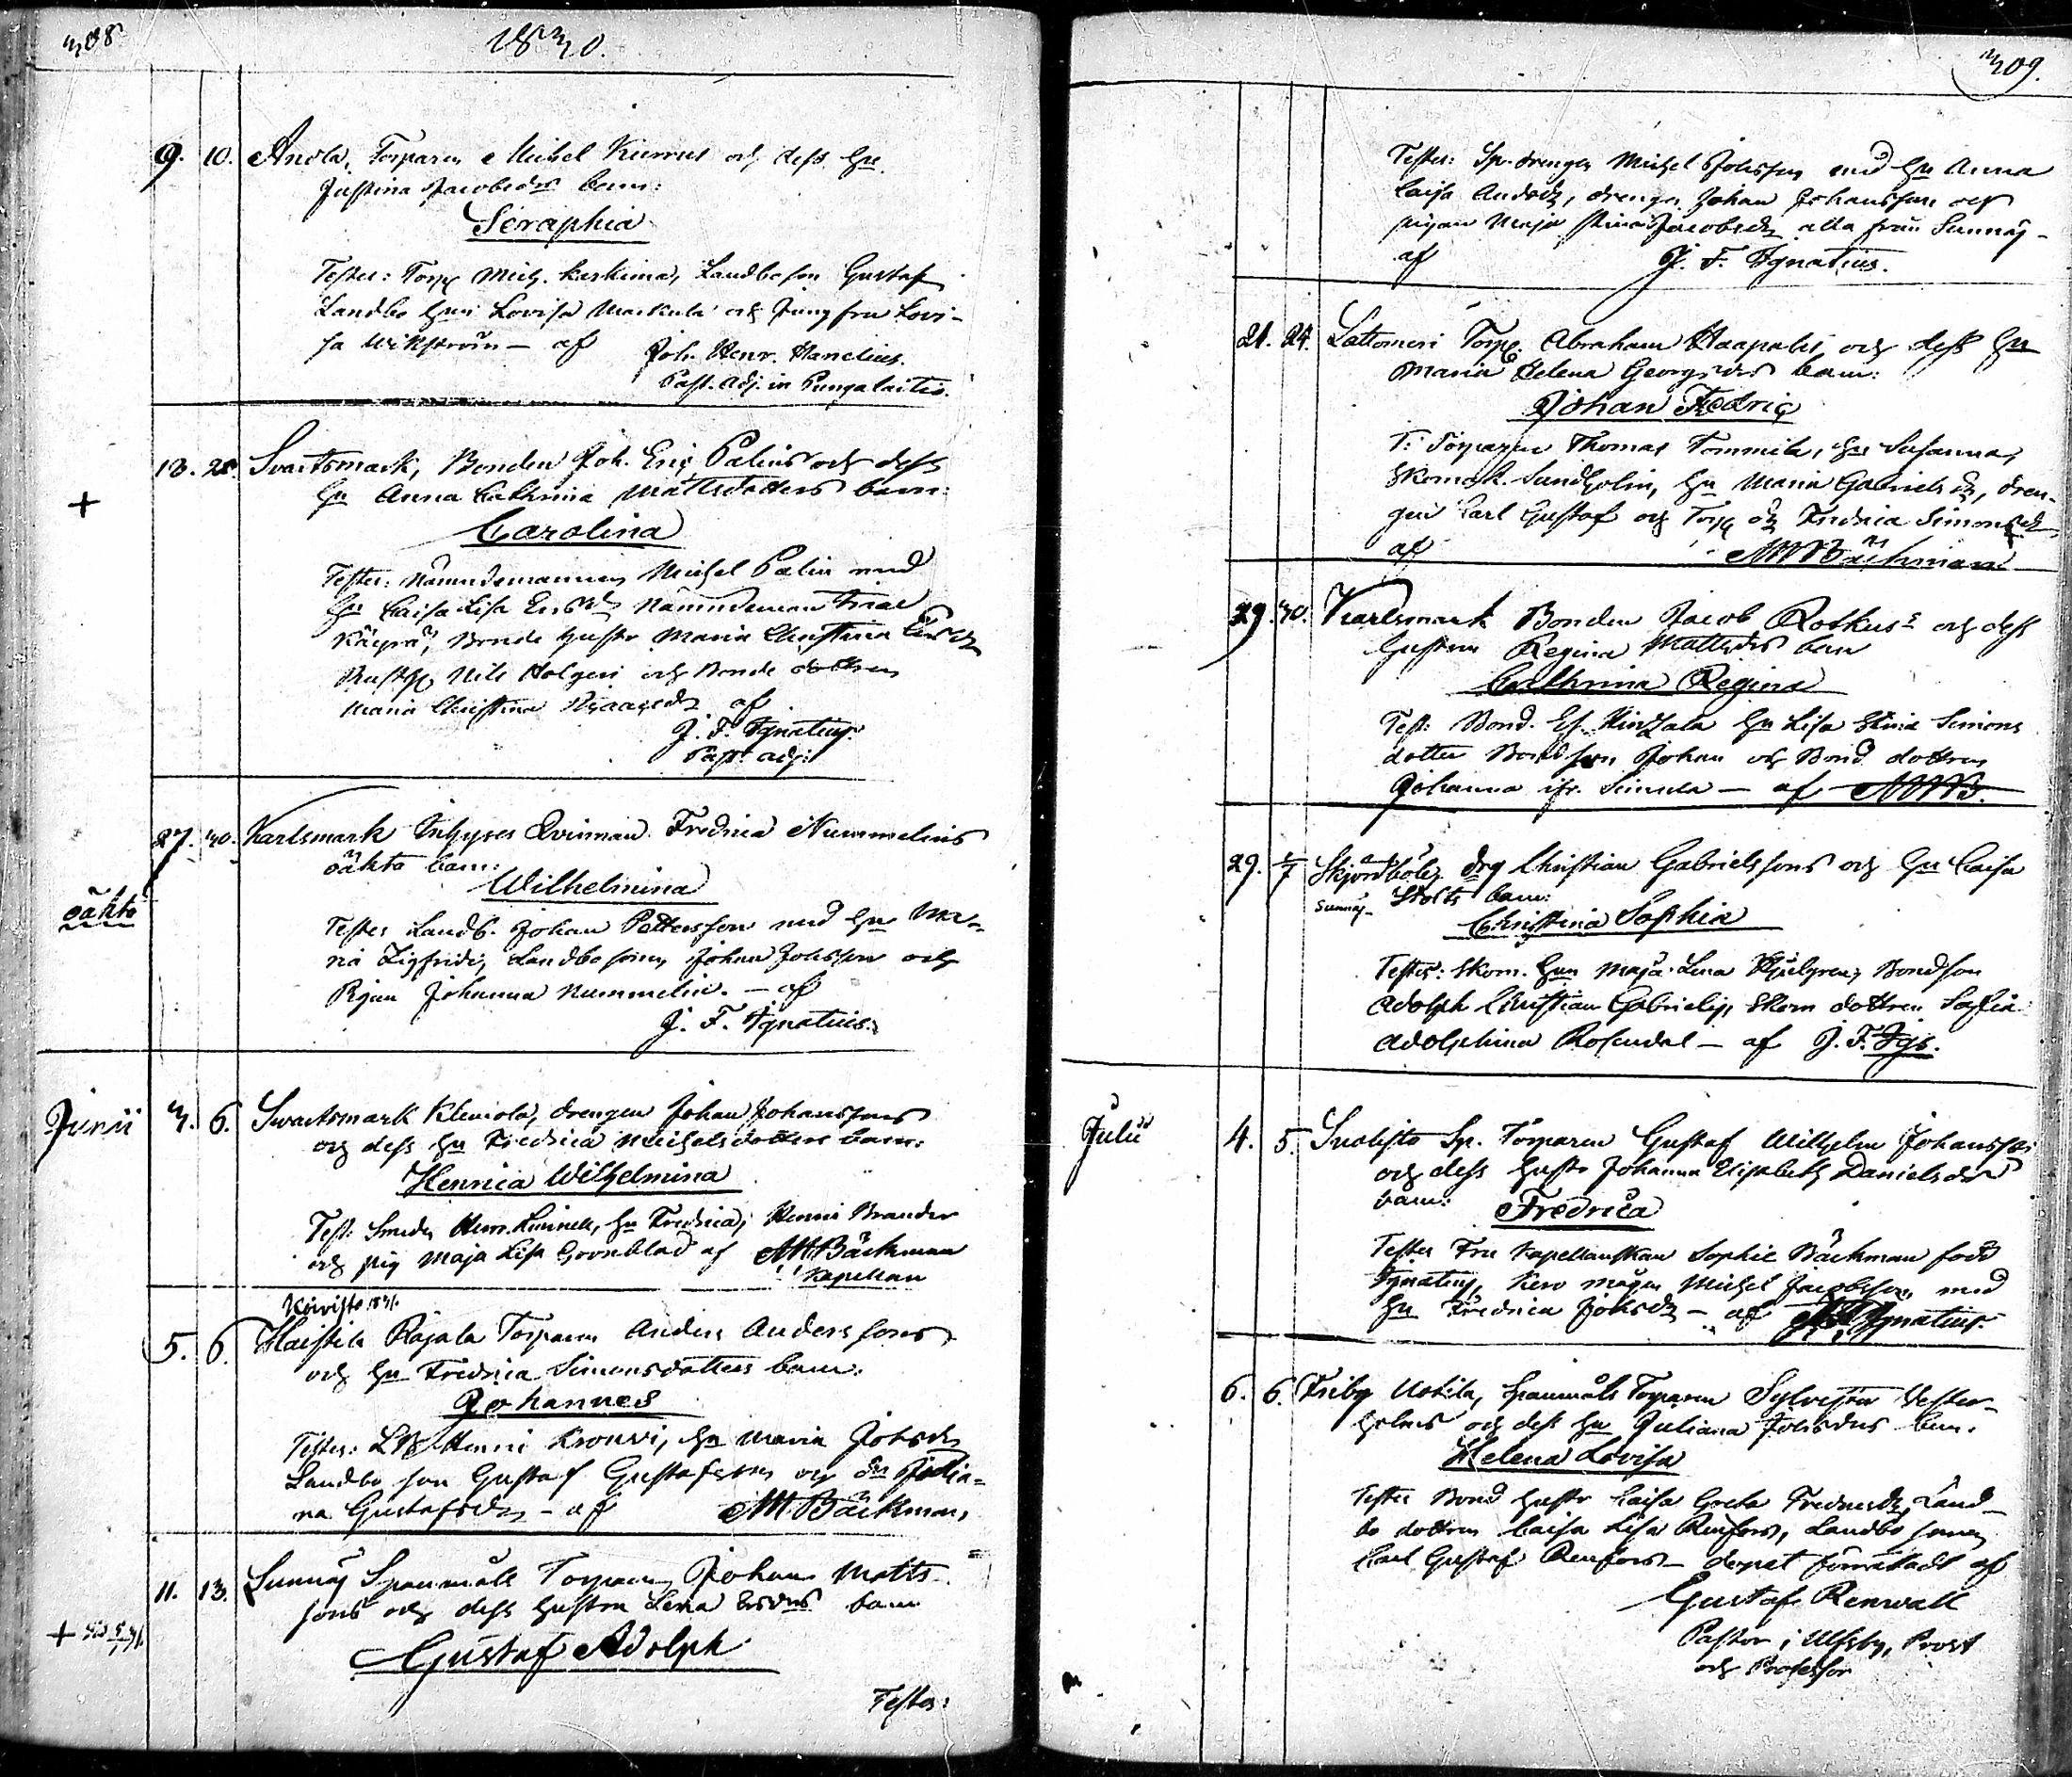 308
1830.
9. 10. Anola, Torparen Michel Kurrus och dess Hu
Justina Jacobsdrs barn:
Seraphia
Testes: Torp Mich. Keskima, Landboson Gustaf
Landbo Hun Lovisa Markula och Jungfru Lovi-
sa Wikström – af Joh. Henr. Hanelius.
Past. Adj. in Pungalaitio.
+ 13. 28. Svartsmark, Bonden Joh. Eric Palins och dess
Hu Anna Cathrina Mattsdotters barn:
Carolina
Testes: Nämndemannen Michel Palin med
Hu Caisa Lisa Ersdr Nämndeman Isac
Bonde Hustr Maria Christina Ersdr
Nils Holgeri och Bonde dottren
Maria Christina Isaacsdr af
J. F. Ignatius.
Past. adj:
oäkta 27. 30. Karlsmark Inhyses Qvinnan Fredrica Nummelins
oäkta barn:
Wilhelmina
Testes Landb. Johan Pettersson med Hu Ma-
ria Zigfridi, Landbosonen Johan Johsson och
Pigan Johanna Nummelin. – af
J. F. Ignatius.
Junii 3. 6. Svartsmark Klemola, drengen Johan Johanssons
och dess Hu Fredrica Michelsdotters barn:
Henrica Wilhelmina
Test: Smeden Henr. Hu Fredrica, Henric Brander
och pig Maja Lisa Grönblad af AMBäckman
Kapellan
Koivisto 1831.
5. 6. Haistila Rajala Torparen Anders Anderssons
och Hu Fredrica Simonsdotters barn:
Johannes
Testes: LB Henric Krouvi, Hu Maria Johsdr
Landbo son Gustaf Gustafsson och dr Julia-
na Gustafsdr – af AMBäckman,
+ 11. 13. Sunnäs Spannmåls Torparen Johan Matts-
sons och dess hustru Lena Ersdrs barn
Gustaf Adolph
Testes:
309.
Testes: Sp. drengen Michel Johsson med Hu Anna
Caisa Andsdr, drengen Johan Johansson och
pigan Maja Stina Jacobsdr alla från Sunnäs –
af J. F. Ignatius.
21. 24. Lattomeri Torp. Abraham Haapalas och dess Hu
Maria Helena Georgsdrs barn:
Johan Fredric
T: Torparen Thomas Tommila, Hu Susanna,
Skomak. Sundholm, Hu Maria Gabrielsdr, dren-
gen Carl Gustaf och Torp dr Fredrica Simonsdr
af AMBäckman
29. 30. Karlsmark Bonden Jacob Rotkus och dess
Hustrus Regina Mattsdrs barn
Cathrina Regina
Test: Bond. Hu Lisa Stina Simons
dotter Bondson Johan och Bond dottren
Johanna ifr. – af AMB.
29. 4/7 Skjordböle, drg Christian Gabrielssons och Hu Caisa
Sunnäs Stolts barn:
Christina Sophia
Testes: Skom. Hun Maja Lena Bondson
Adolph Christian Gabrielss, Skom dottren Sophia
Adolphina Rosendal – af J. F. Igs.
Julii 4. 5. Sp. Torparen Gustaf Wilhelm Johanssons
och dess hustr Johanna Elisabeth Danielsdrs
barn: Fredrica
Testes Fru Kapellanskan Sophie Bäckman född
Ignatius, Michel Jacobsson med
Hu Fredrica Johsdr – af J. F. Ignatius.
6. 6. Friby Uotila, Spannmåls Torparen Sylvester Vester-
holms och dess Hu Juliana Johsdrs barn.
Helena Lovisa
Testes Bond hustr Caisa Greta Fredricsdr, Land-
bo dottren Caisa Lisa Renfors, Landbo sonen
Carl Gustaf Renfors – döpet förrättadt af
Gustaf Renvall
Pastor i Ulfsby, Prost
och Professor